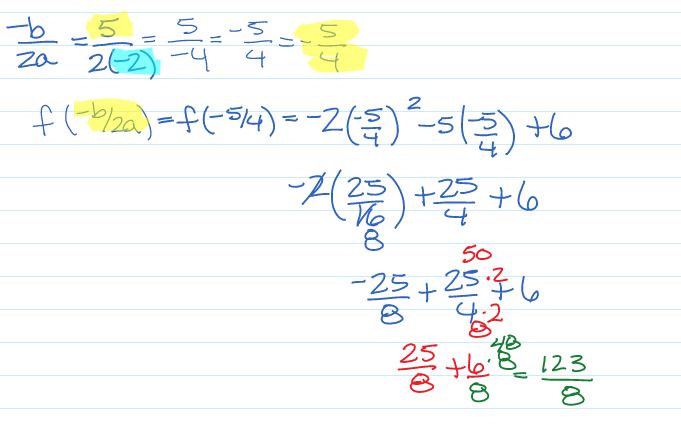 -b/2a = 5/2(-2) = 5/-4 = -5/4 = -5/4
f(-b/2a) = f(-5/4) = -2(-5/4)² - 5(-5/4) + 6
-2(25/16) + 25/4 + 6
8
50
-25/8 + 25·2/4·2 + 6
8
48
25/8 + 6·8/8 = 123/8